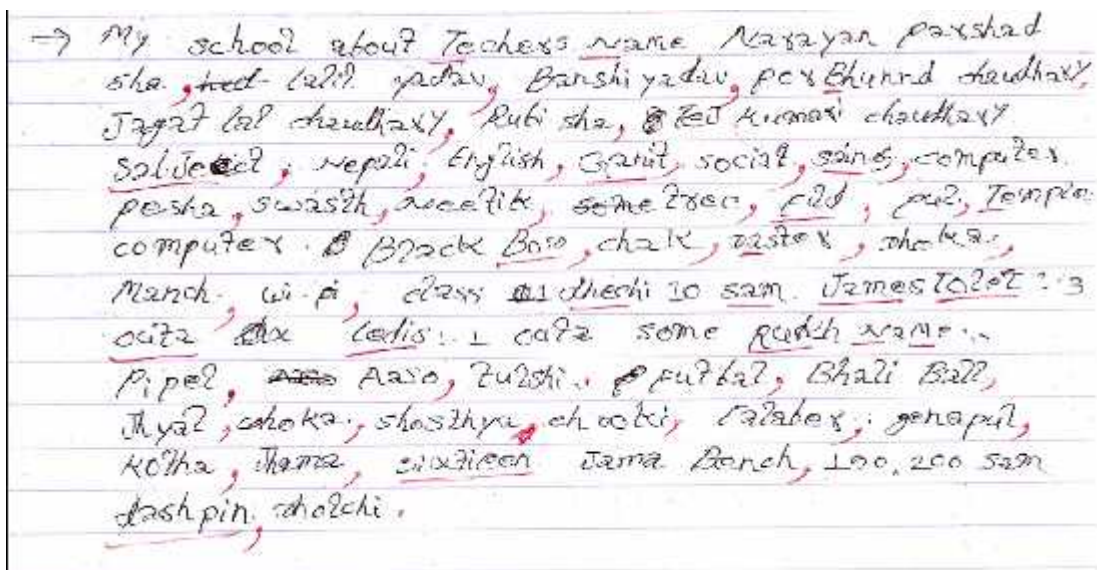 → My school about Techers name Narayan parshad
sha, lalit yadav, Banshi yadav, per Bhunnd chaudhary,
Jagat lal chaudhary, Rubi sha, Tej kumari chaudhary
Salject, Nepali, English, Ganit, social, sains, computer
pesha, swasth, neetik, some tree, fild, pul, Tempin
computer. Black Boso, chalk, Daster, dhoka,
Manch, wi-pi, class 1 dhechi 10 sam. James Tolet : 3
outa ledis : 1 outa some name :
Pipel, Aaso, tulshi, futbal, Bhali Ball,
Jhyal, dhoka, shosthya, chooki, genaput,
Kotha, Jhama, Jama Banch, 100, 200 sam
dashpin, dholchi.